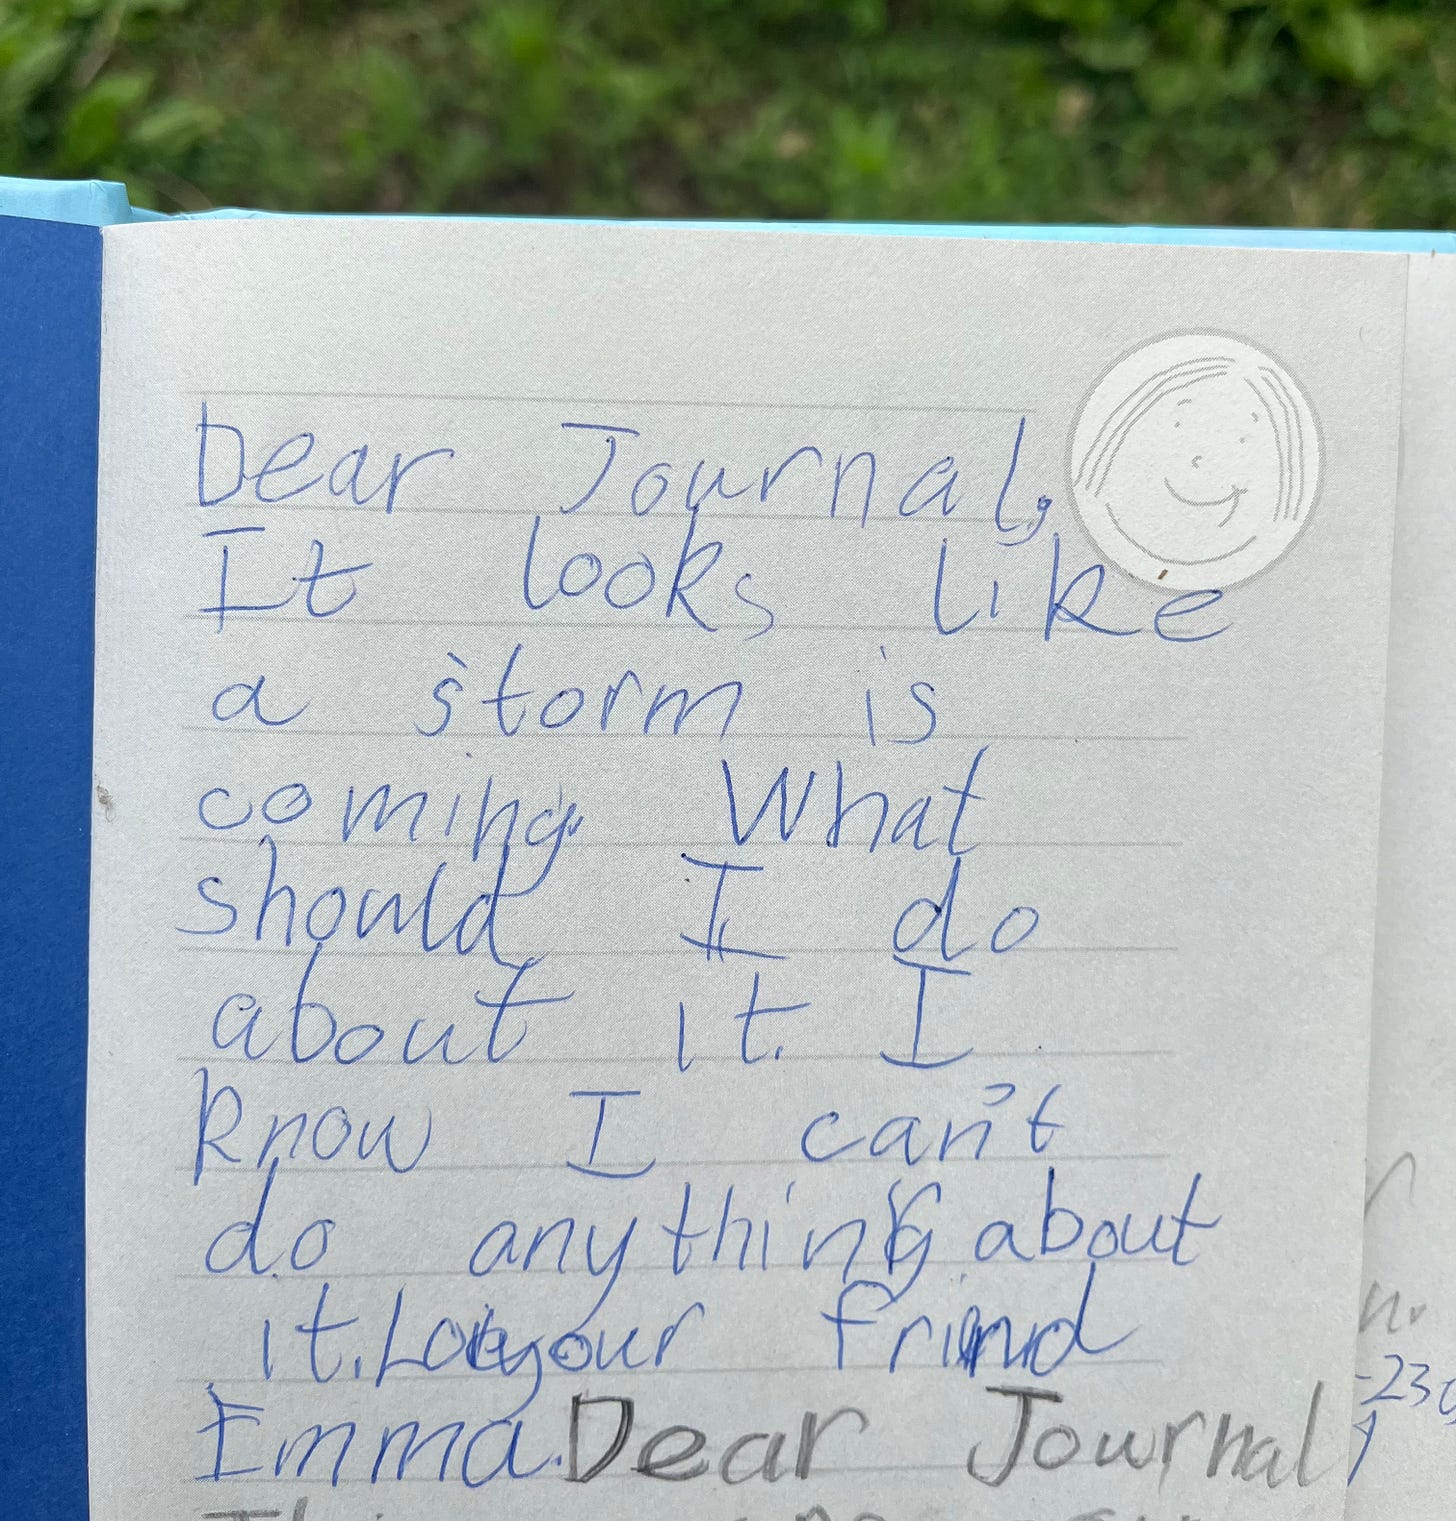 Dear Journal,
It looks like
a storm is
coming. What
should I do
about it. I
know I can't
do anything about
it. your friend
Emma. Dear Journal
n.
-230